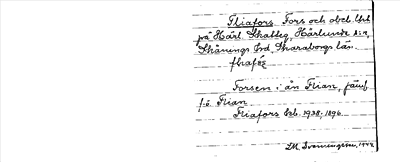 Fliafors. Fors och obet. lht
på Härl. Skatteg., Härlunda sn,
Skånings hd, Skaraborgs län.
fliafǫs
Forsen i ån Flian, jämf
f.ö. Flian
Fliafors Erb. 1938: 1896
M. Svenungson, 1942